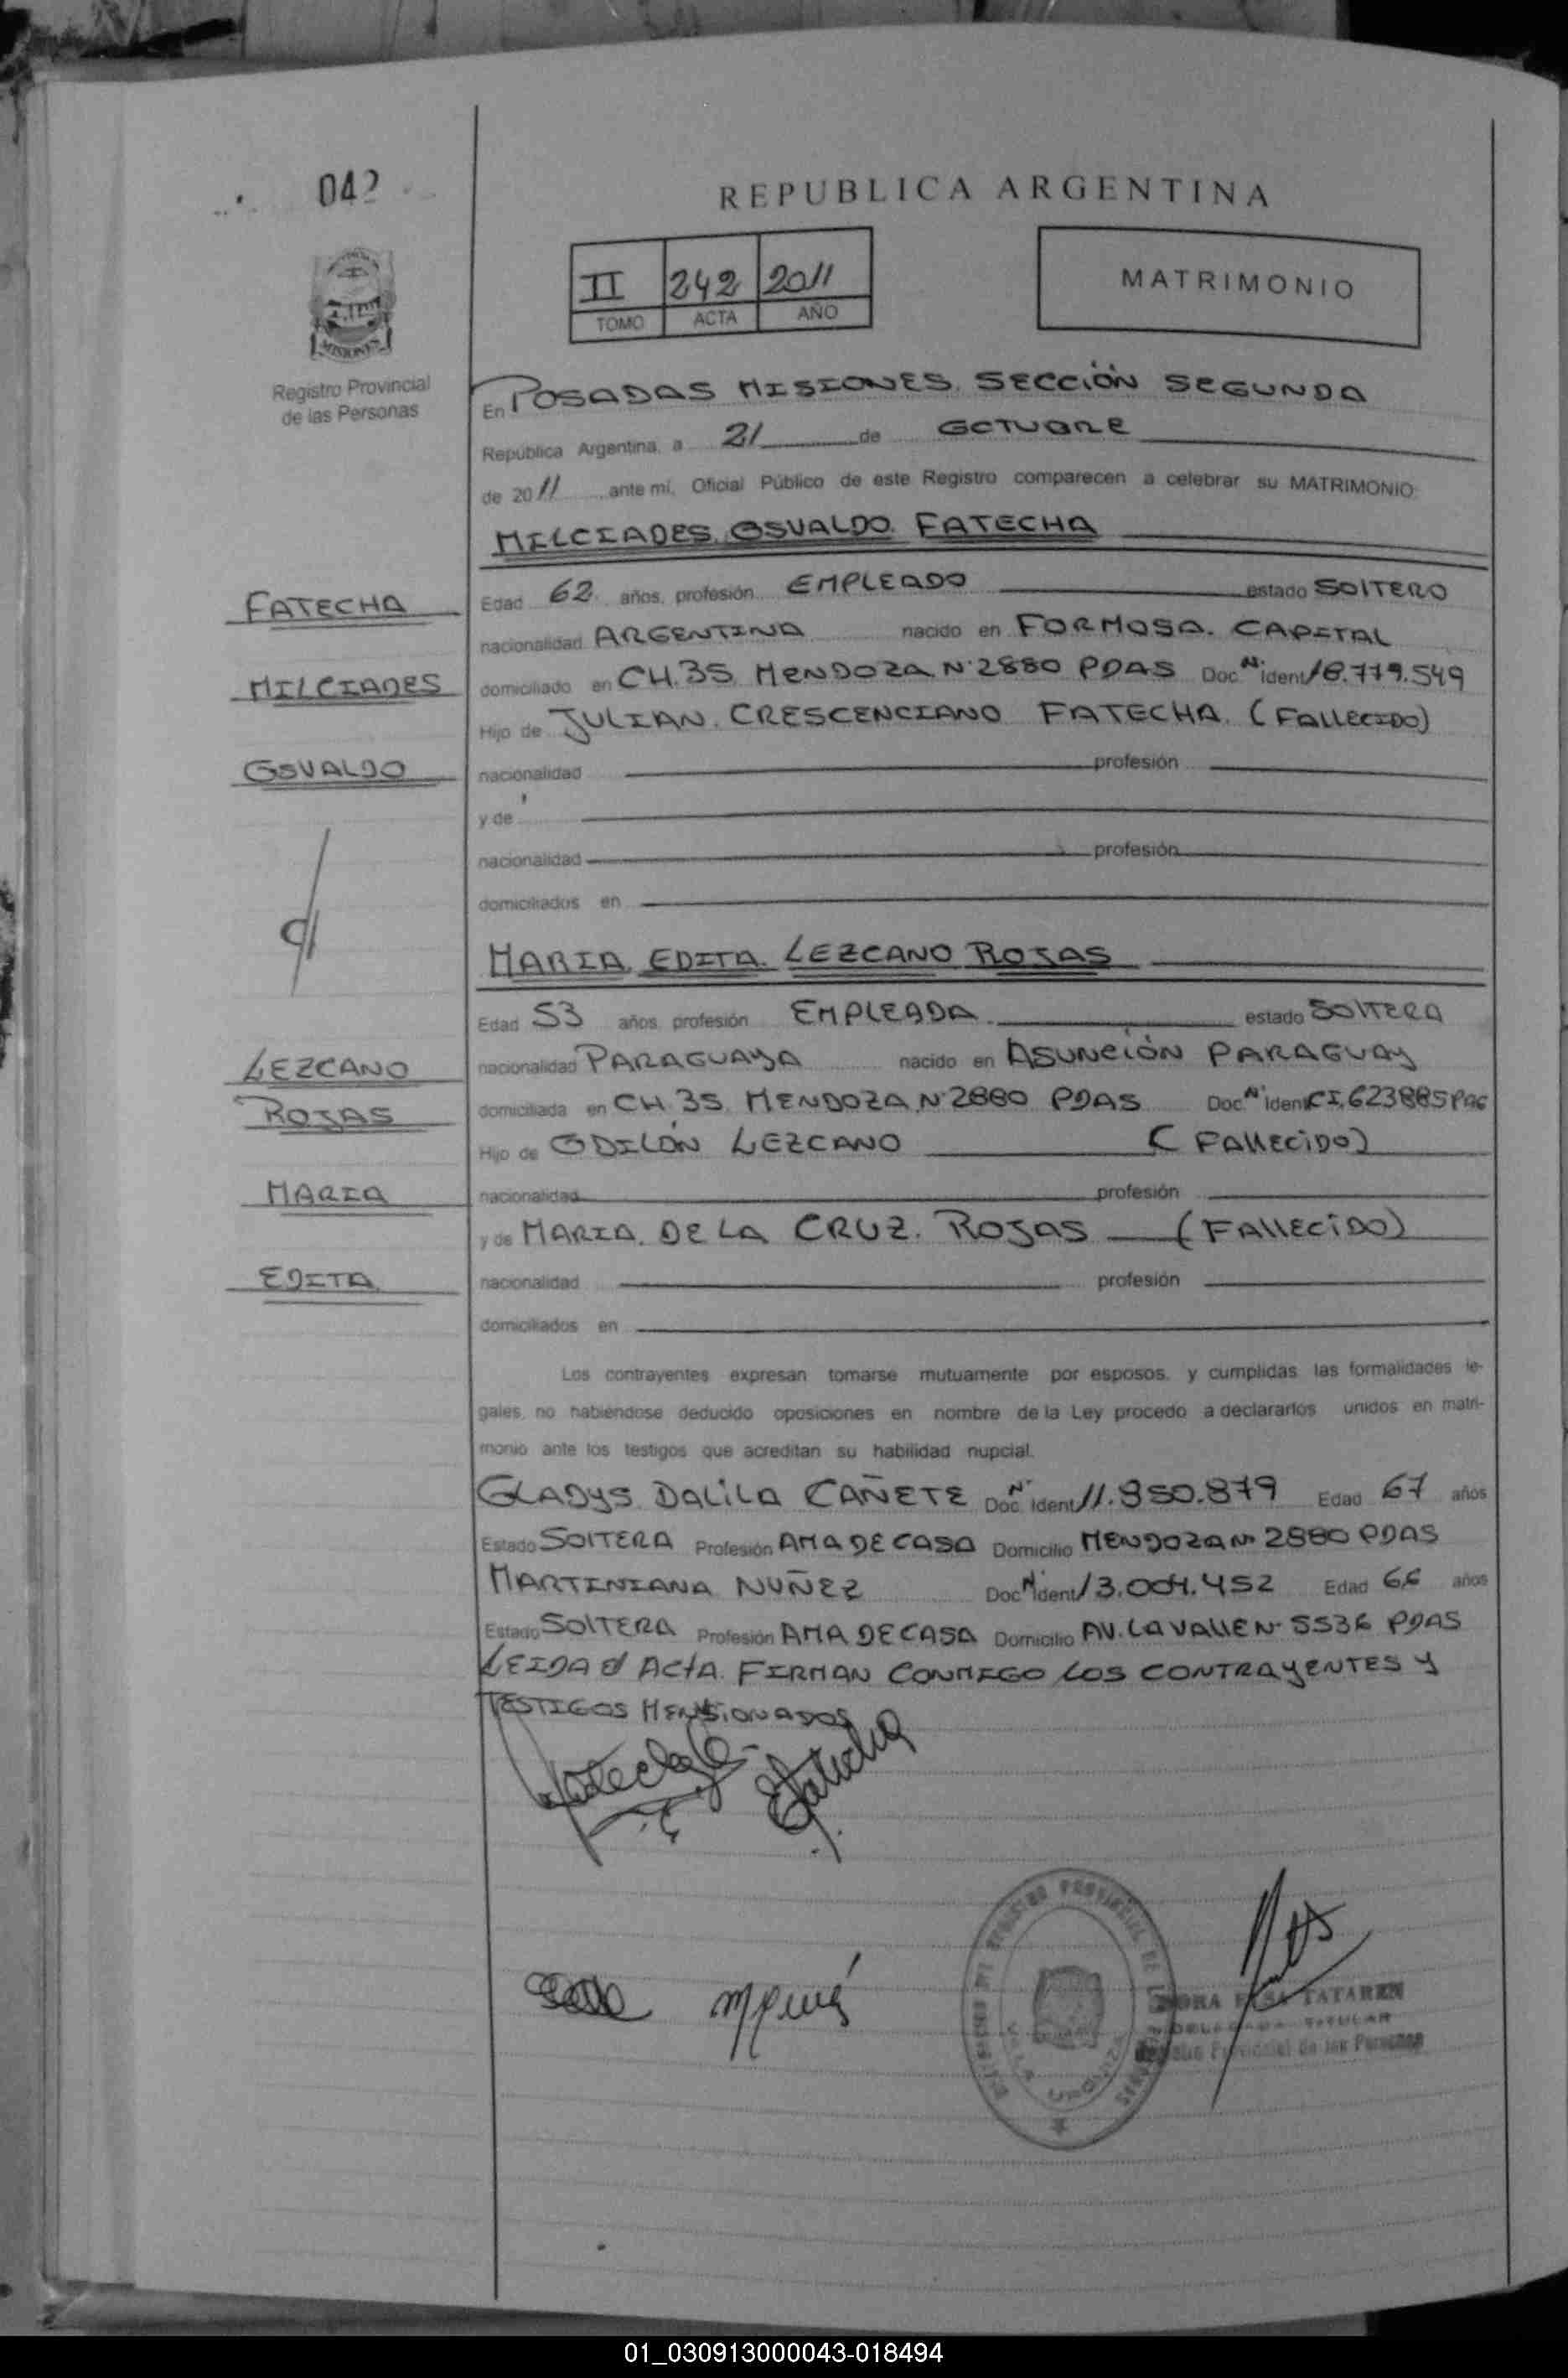 042
REPUBLICA ARGENTINA
II 242 2011
TOMO ACTA AÑO
MATRIMONIO
MISIONES
Registro Provincial
de las Personas
En POSADAS MISIONES. SECCIÓN SEGUNDA
República Argentina, a 21 de OCTUBRE
de 2011 ante mí, Oficial Público de este Registro comparecen a celebrar su MATRIMONIO:
MILCIADES. OSVALDO. FATECHA
FATECHA
Edad 62 años, profesión EMPLEADO estado SOLTERO
nacionalidad ARGENTINA nacido en FORMOSA. CAPITAL
MILCIADES
domiciliado en CH.35 MENDOZA Nº2880 PDAS Doc. Nº ident 8.779.549
Hijo de JULIAN. CRESCENCIANO FATECHA. (FALLECIDO)
OSVALDO
nacionalidad profesión
y de
nacionalidad profesión
domiciliados en
MARIA. EDITA. LEZCANO ROJAS
Edad 53 años profesión EMPLEADA estado SOLTERA
LEZCANO
nacionalidad PARAGUAYA nacido en ASUNCIÓN PARAGUAY
ROJAS
domiciliada en CH 35. MENDOZA Nº2880 PDAS Doc. Nº ident CI.623885
Hijo de ODILÓN LEZCANO (FALLECIDO)
MARIA
nacionalidad profesión
y de MARIA. DE LA CRUZ. ROJAS (FALLECIDO)
EDITA
nacionalidad profesión
domiciliados en
Los contrayentes expresan tomarse mutuamente por esposos, y cumplidas las formalidades le-
gales, no habiéndose deducido oposiciones en nombre de la Ley procedo a declararlos unidos en matri-
monio ante los testigos que acreditan su habilidad nupcial.
GLADYS DALILA CAÑETE Doc. Nº Ident 11.950.879 Edad 67 años
Estado SOLTERA Profesión AMA DE CASA Domicilio MENDOZA Nº 2880 PDAS
MARTINIANA NUÑEZ Doc Nº Ident 13.004.452 Edad 66 años
Estado SOLTERA Profesión AMA DE CASA Domicilio AV. LAVALLE Nº 5536 PDAS
LEIDA el ACTA. FIRMAN CONMIGO LOS CONTRAYENTES Y
TESTIGOS MENSIONADOS
REGISTRO PROVINCIAL DE LAS
ELSA TATAREN
DELEGADA TITULAR
Registro Provincial de las Personas
01_030913000043-018494